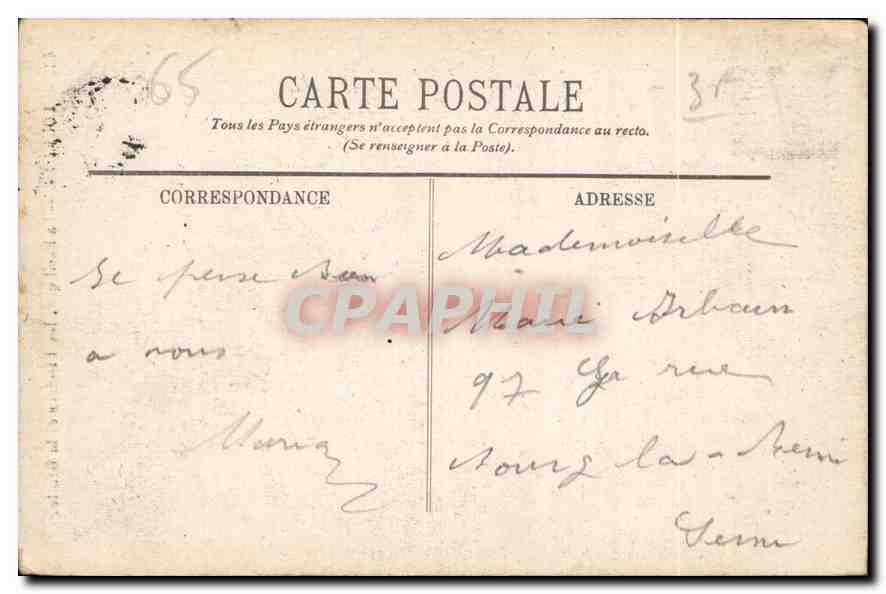 65
3f
CARTE POSTALE
Tous les Pays étrangers n'acceptent pas la Correspondance au recto.
(Se renseigner à la Poste).
CORRESPONDANCE
Je pense bien
a vous
Maria
ADRESSE
Mademoiselle
Marie Urbain
97 Gr rue
bourg la-Reine
Seine
CPAPHIL